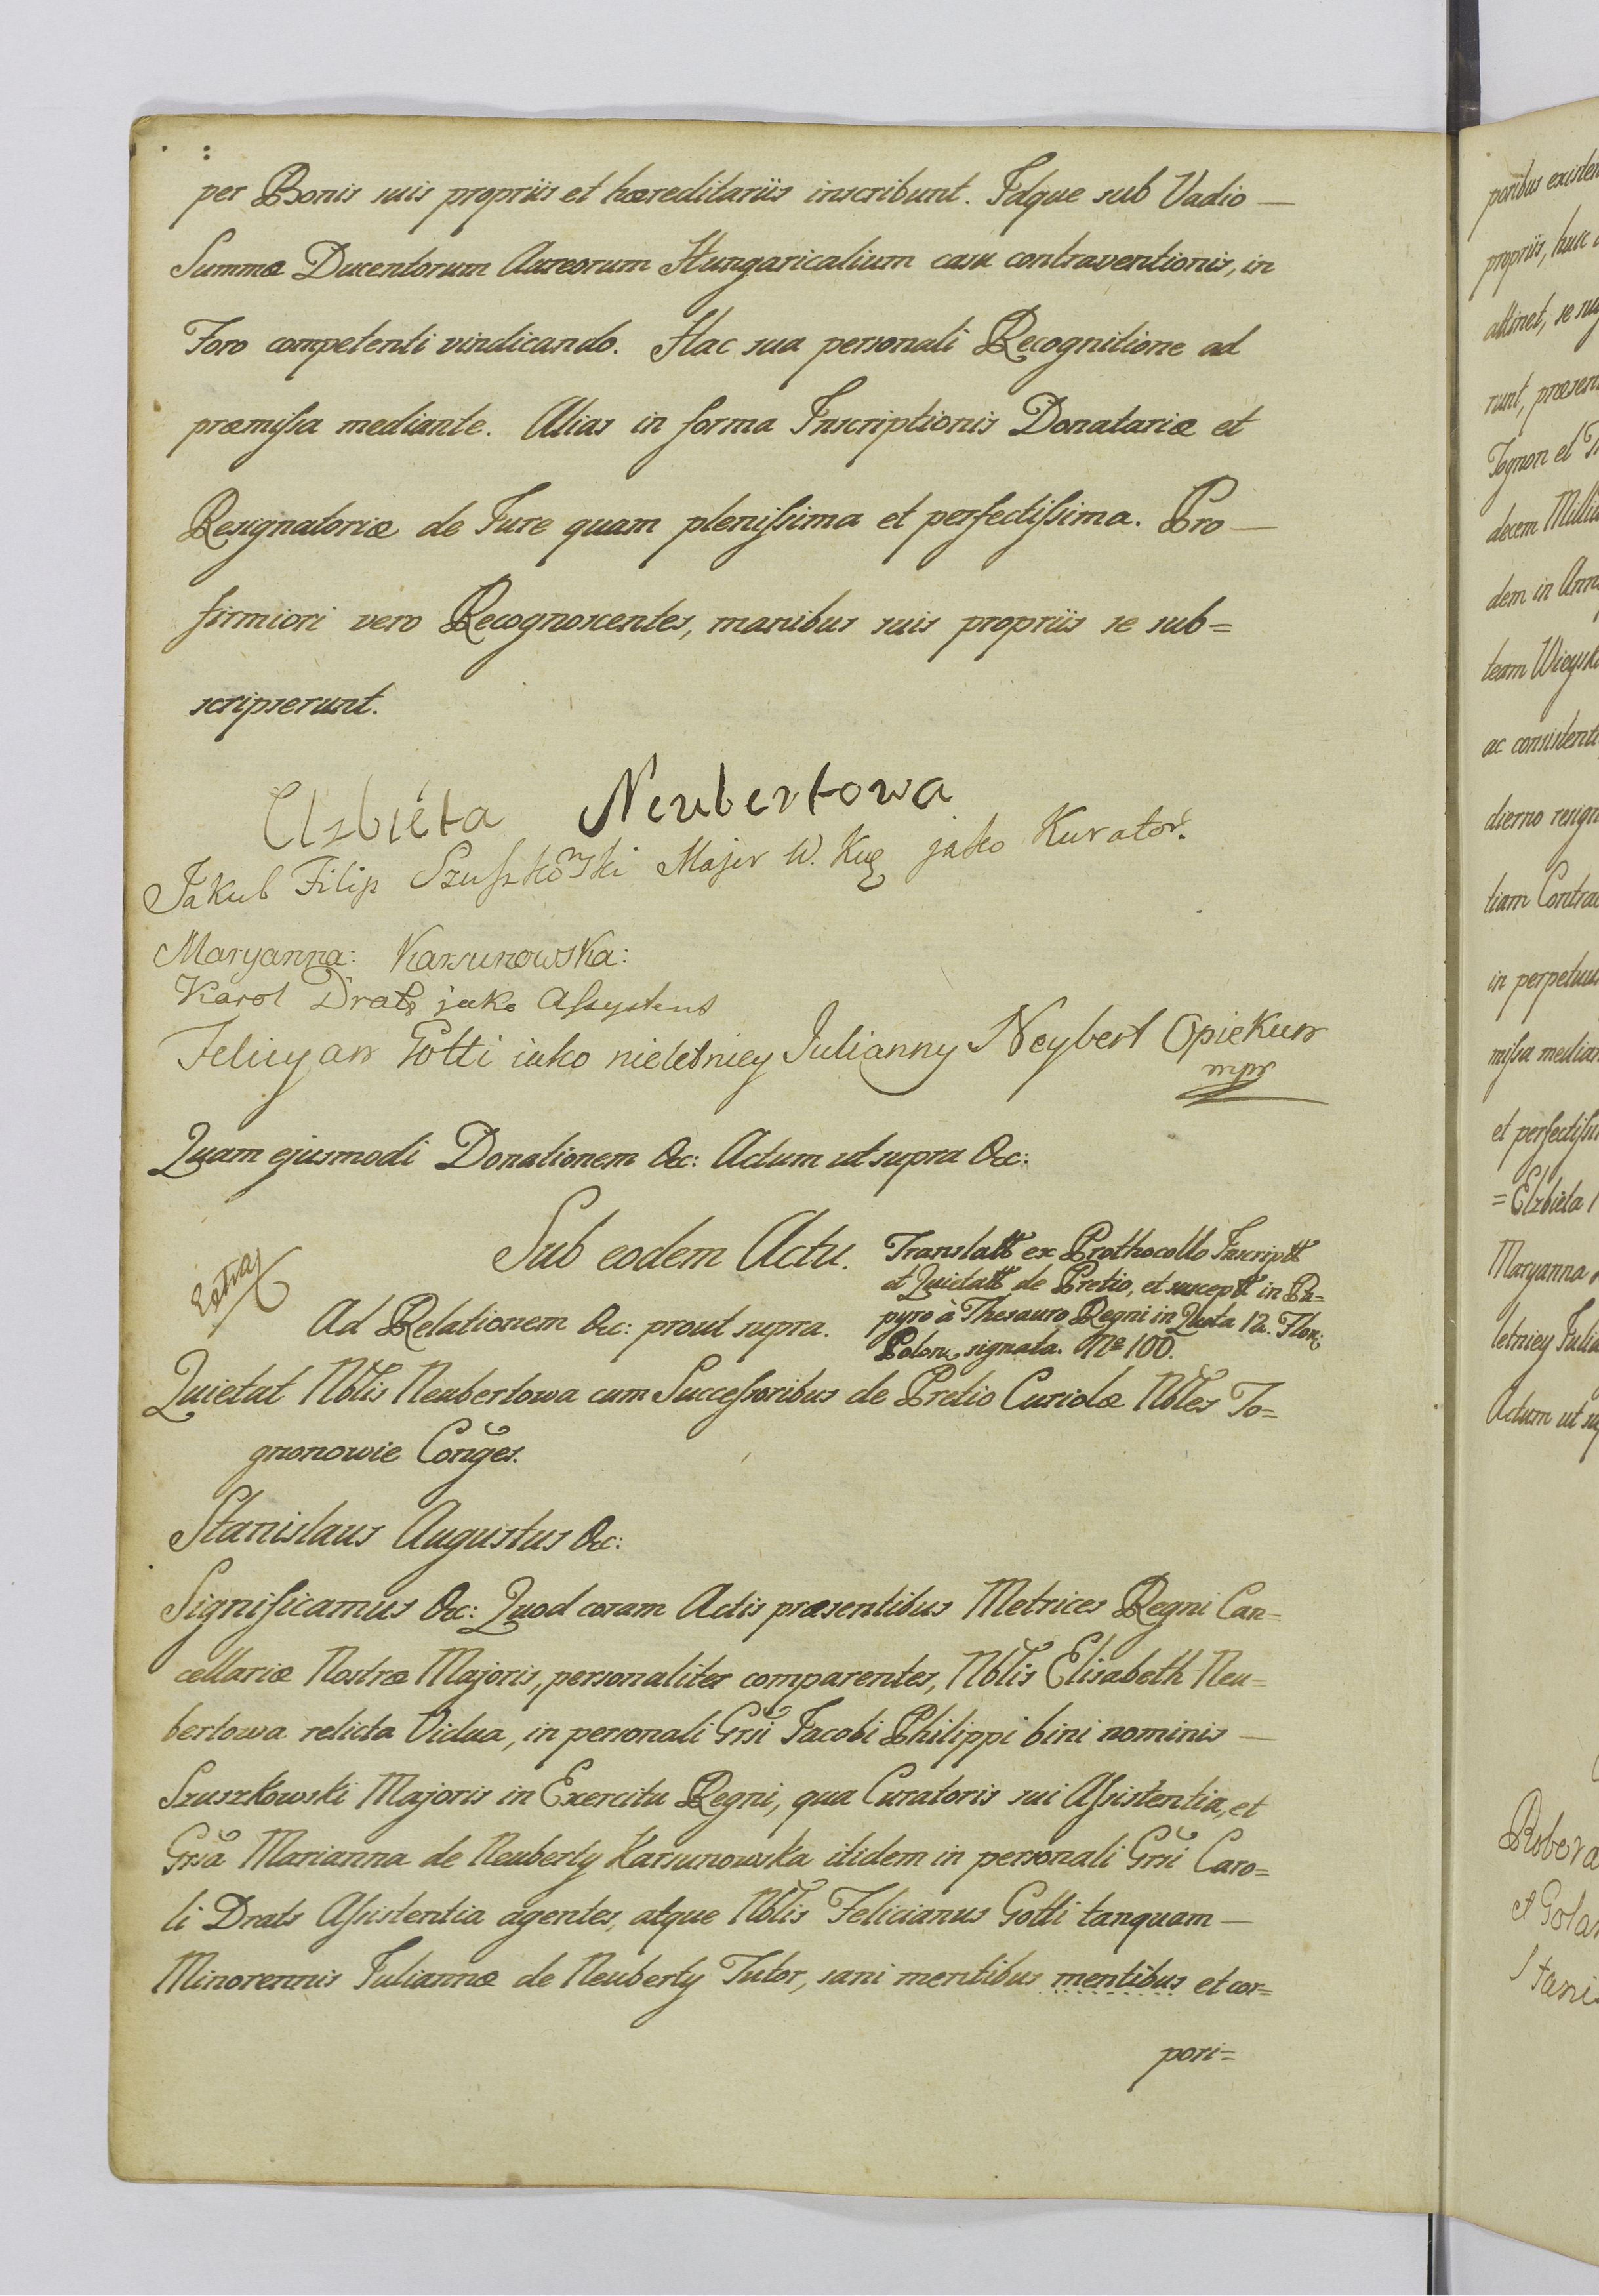 per Bonis suis propriis et hæreditariis inscribunt. Idque sub Vadio —
Summæ Ducentorum Aureorum Hungaricalium casu contraventionis, in
Foro competenti vindicando. Hac sua personali Recognitione ad
præmissa mediante. Alias in forma Inscriptionis Donatariæ et
Resignatoriæ de Jure quam plenissima et perfectissima. Pro —
firmiori vero Recognoscentes, manibus suis propriis se sub=
scripserunt.
Elzbiéta Neubertowa
Jakub Filip Szuszkowski Majer W. Kor jako Kurator.
Maryanna: Karsunowska:
Karol Drats jako Assystens
Felicyan Gotti iako nieletniey Julianny Neybert Opiekun
mpr
Quam ejusmodi Donationem &c: Actum ut supra &c:
Sub eodem Actu.
Translatt ex Prothocollo Inscriptt
et Quietatt de Pretio, et susceptt in Pa=
pyro à Thesauro Regni in Quota 12. Flor:
Polon, signata. No 100.
Extra
Ad Relationem &c: prout supra.
Quietat Nblis Neubertowa cum Successoribus de Pretio Curiolæ Nbles To=
gnonowie Conges.
Stanislaus Augustus &c:
Significamus &c: Quod coram Actis præsentibus Metrices Regni Can=
cellariæ Nostræ Majoris, personaliter comparentes, Nblis Elisabeth Neu=
bertowa relicta Vidua, in personali Grsi Jacobi Philippi bini nominis —
Szuszkowski Majoris in Exercitu Regni, qua Curatoris sui Assistentia, et
Grsa Marianna de Neuberty Karsunowska itidem in personali Grsi Caro=
li Drats Assistentia agentes, atque Nblis Felicianus Gotti tanquam —
Minorennis Juliannæ de Neuberty Tutor, sani mentibus mentibus et cor=
pori=
propriis, huic
attinet, se
runt,
Tognon et
decem
dem in
team
ac
dierno
tiam
in
missa
et
=Elzbieta
Maryanna
letniey
Actum ut